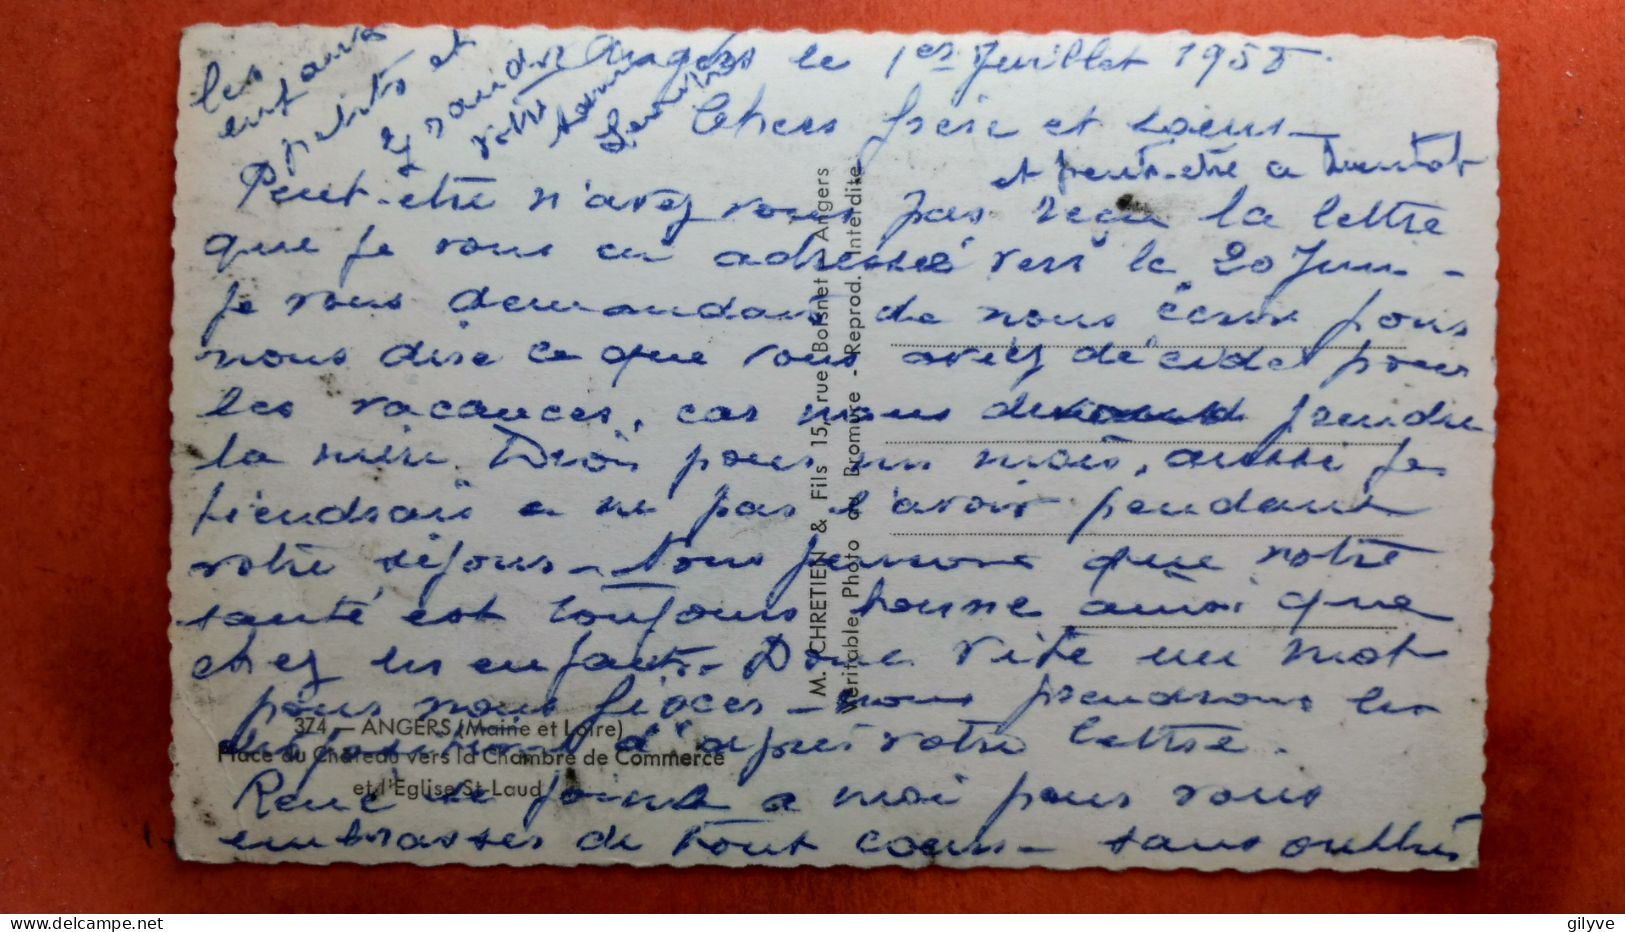 Angers le 1er Juillet 1955
Chers frère et soeur
Peut-être n'avez vous pas reçu la lettre
que je vous ai adressée vers le 20 Juin -
je vous demandais de nous écrire pour
nous dire ce que vous avez décidé pour
les vacances, car nous prendre
la mère pour un mois, aussi je
tiendrais a ne pas l'avoir pendant
votre séjour - Nous pensons que votre
santé est toujours bonne ainsi que
chez les enfants - Donc vite un mot
pour nous fixer - nous prendrons les
d'après votre lettre.
René se joint a moi pour vous
embrasser de tout coeur - sans oublier
les
enfants
petits et
grands
votre
soeur
et peut-être a bientôt
M. CHRETIEN & Fils 15, rue Boisnet Angers
Véritable Photo au Bromure - Reprod. Interdite
374 - ANGERS (Maine et Loire)
Place du Château vers la Chambre de Commerce
et l'Eglise St-Laud
delcampe.net
gilyve